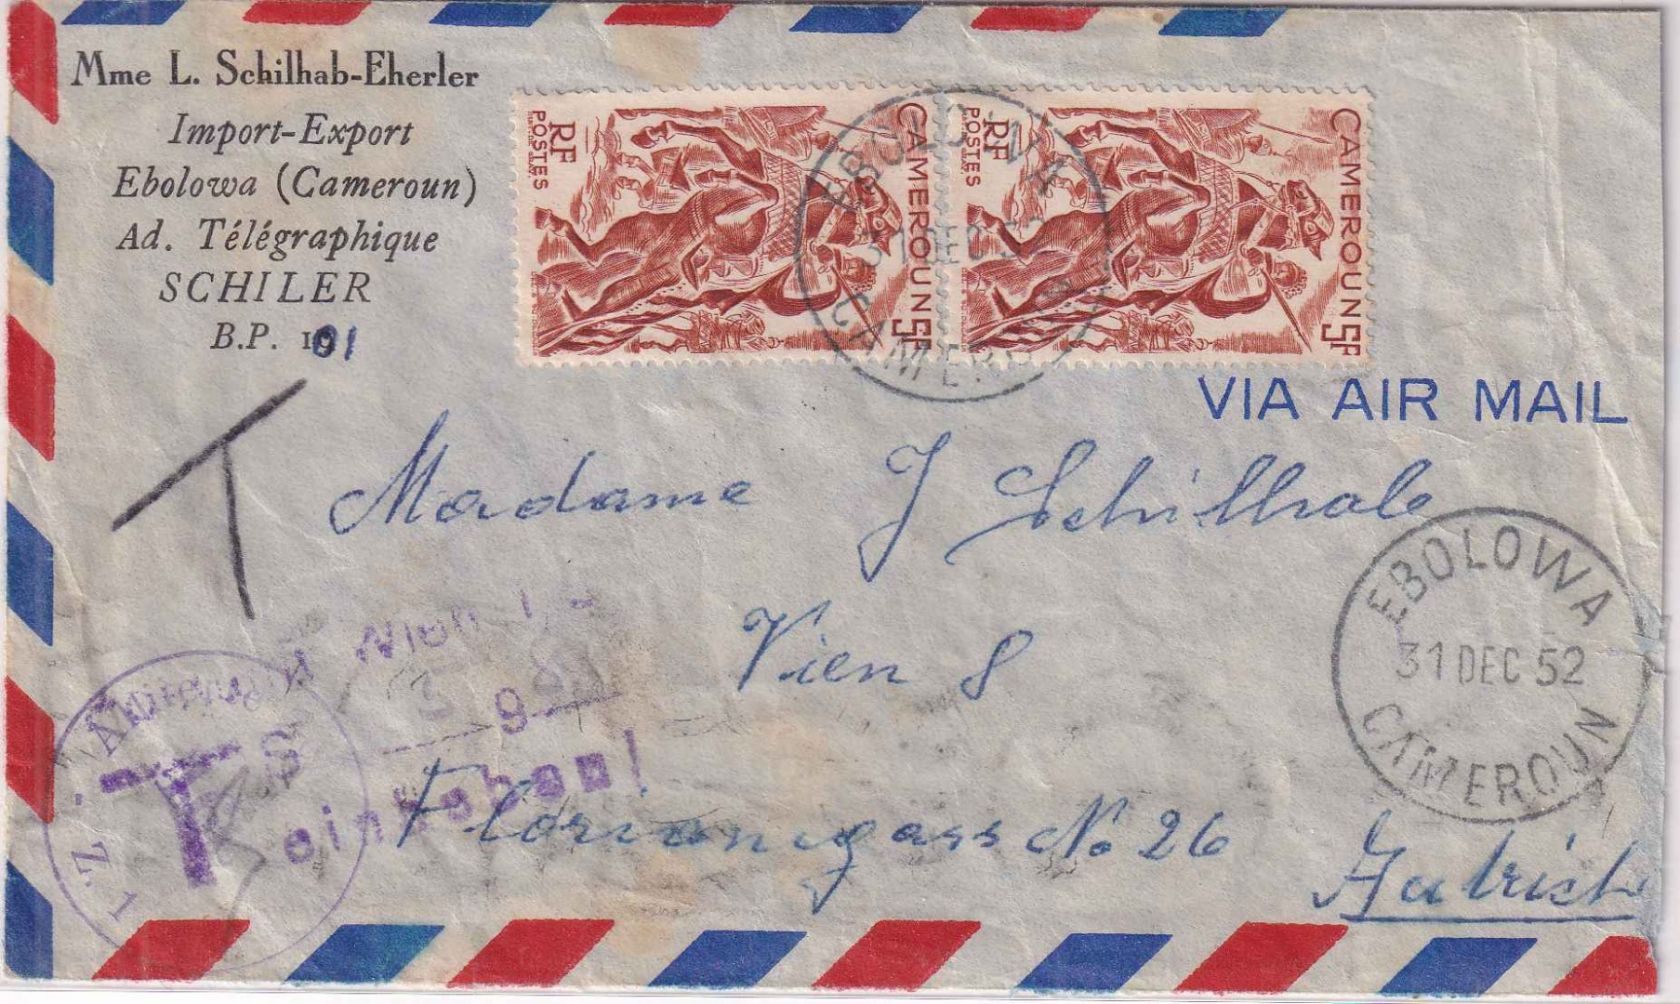 Mme L. Schilhab-Eherler
Import-Export
Ebolowa (Cameroun)
Ad. Télégraphique
SCHILER
B.P. 101
RF
POSTES
CAMEROUN 5F
RF
POSTES
CAMEROUN 5F
EBOLOWA
31 DEC 52
CAMEROUN
VIA AIR MAIL
T
Madame J Schilhab
Vien 8
EBOLOWA
31 DEC 52
CAMEROUN
T
9
S
einheben!
Floriangass No 26
Autrich